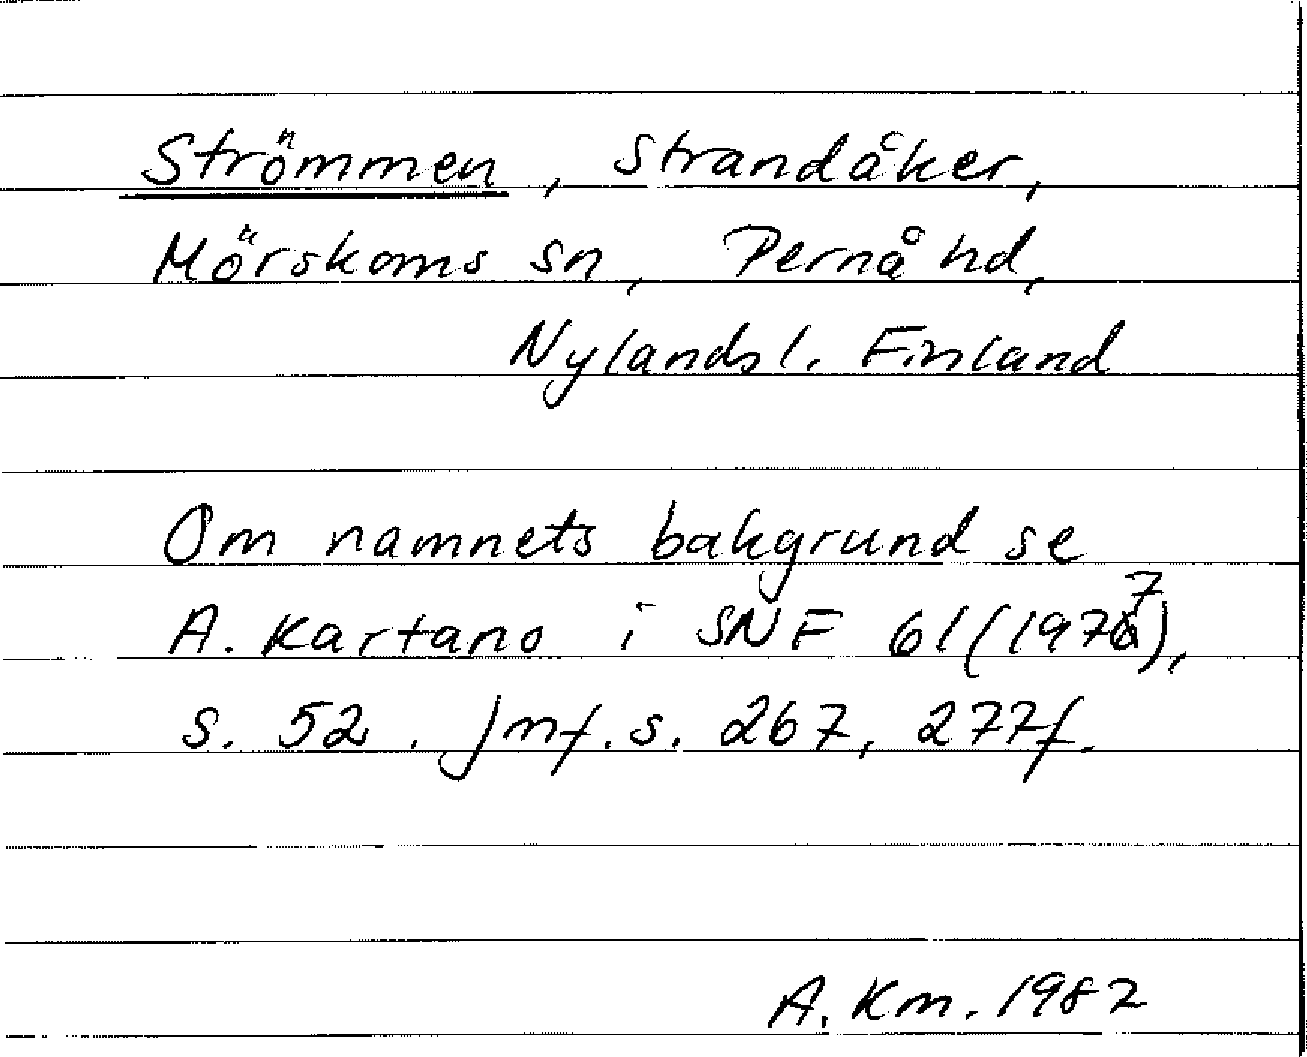 Strömmen, Strandåker,
Mörskoms sn, Pernå hd,
Nylands l. Finland
Om namnets bakgrund se
A. Kartano i SNF 61 (1977),
s. 52. Jmf. s. 267, 277f.
A. Km. 1982